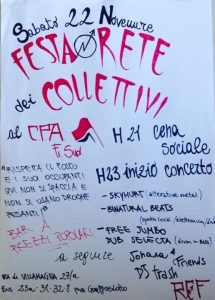 Sabato 22 Novembre
FESTA RETE
dei COLLETTIVI
al CPA
Fi Sud
H 21 cena
sociale
H23 inizio concerto
"RISPETTA IL POSTO
E I SUOI OCCUPANTI
QUI NON SI SPACCIA E
NON SI USANO DROGHE
PESANTI!"
- SKYHURT (alternative metal)
- BINATURAL BEATS
- FREE JUMBO
DUB SELECTA (drum n bass)
BAR A
PREZZI POPOLARI
a seguire
Johana & Friends
DJ trash
VIA DI VILLAMAGNA 27/a
Bus 23a-31-32-8
REF